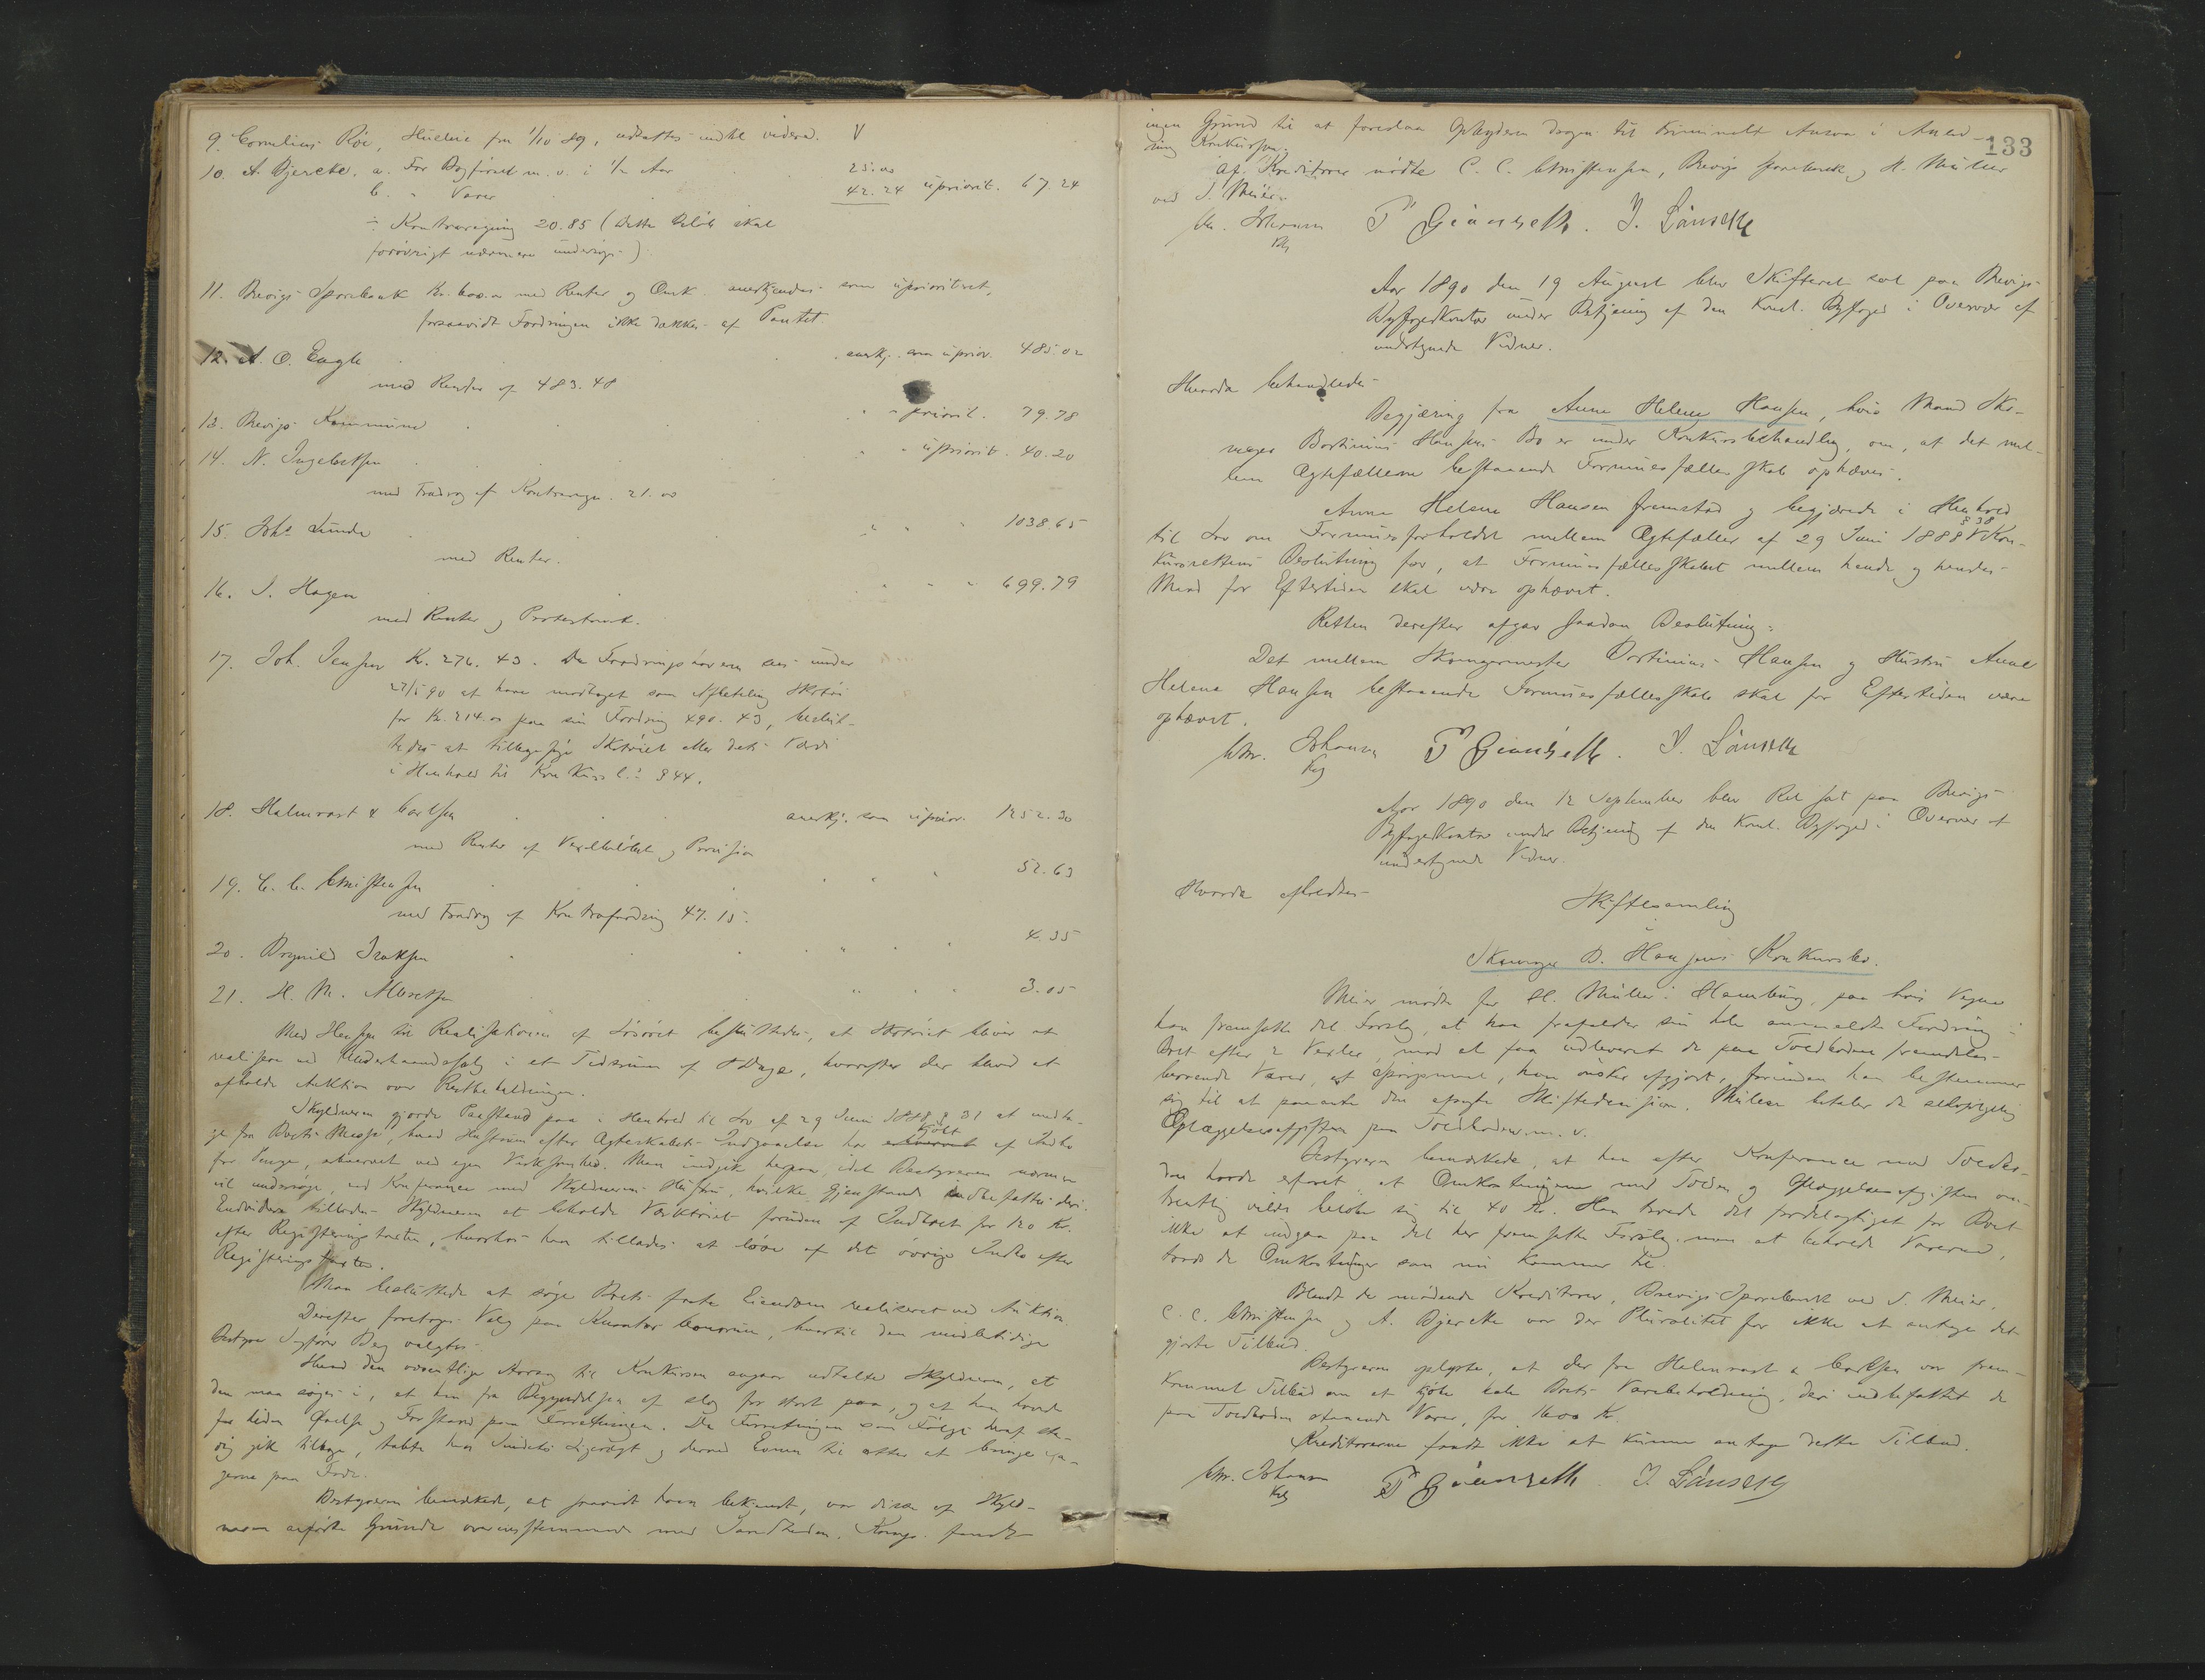 9. Cornelius Röe, Husleie fra 1/10 89, udsattes indtil videre. V
10. A. Bjercke, a. For Bogförsel m. v. i 1/2 Aar 25.00
b. " Varer 42.24 upriorit. 67.24
÷ Kontraregning 20.85 (dette Beløb skal
forövrigt nærmere undersöges)
11. Brevigs Sparebank Kr. 600.00 med Renter og Omk. anerkjendes som uprioriteret,
forsaavidt Fordringen ikke dækkes af Pantet.
12. A. O. Eagle anerkj. som uprior. 485.02
med Renter af 483.48
13. Brevigs Kommune " " priorit. 79.78
14. N. Ingebretsen " " upriorit. 40.20
med Fradrag af Kontraregn. 21.00
15. Johs Lunde " " " 1038.65
med Renter.
16. S. Hagen " " " 699.79
med Renter og Protestomk.
17. Joh. Jensen Kr. 276.43. Da Fordringshaveren sees under
27/5 90 at have modtaget som Afbetaling Skotöi
for Kr. 214.00 paa sin Fordring 490.43, beslut-
tedes at tilbagesöge Skotöiet eller dets Værdi
i Henhold til Konkursl.s § 44.
18. Halmrast & Carlsen anerkj. som uprior. 1252.30
med Renter af Vexelbelöbet og Provision
19. C. C. Christensen " " " 52.63
med Fradrag af Kontrafordring 47.15.
20. Brynild Isaksen " " " 4.35
21. H. M. Albretsen " " " 3.05
Med Hensyn til Realisationen af Lösöret besluttedes, at Skotöiet bliver at
realisere ved Underhaandssalg i et Tidsrum af 8 Dage, hvorefter der bliver at
afholde Auktion over Restbeholdningen.
Skyldneren gjorde Paastand paa i Henhold til Lov af 29 Juni 1888 § 31 at undta-
ge fra Boets Masse, hvad Hustruen efter Ægteskabets Indgaaelse har kjöbt af Indbo
for Penge, erhvervet ved egen Virksomhed. Man indgik herpaa, idet Bestyreren nærmere
vil undersöge, ved Konferance med Skyldnerens Hustru, hvilke Gjenstande indbefattes deri.
Endvidere tillodes Skyldneren at beholde Værktöiet foruden af Indboet for 120 Kr.
efter Registreringstaxten, hvorhos han tillades at löse af det övrige Indbo efter
Registreringstaxten.
Man besluttede at söge Boets faste Eiendom realiseret ved Auktion.
Derefter foretoges Valg paa Kurator bonorum, hvortil den midlertidige
Bestyrer Sagförer Bey valgtes.
Hvad den væsentlige Aarsag til Konkursen angaar udtalte Skyldneren, at
den maa söges i, at han fra Begyndelsen af slog for stort paa, og at han havde
for liden Övelse og Forstand paa Forretningen. Da Forretningen som Fölge heraf sta-
dig gik tilbage, tabte han Sindets Ligevægt og derved Evnen til atter at bringe Sa-
gerne paa Fode.
Bestyreren bemærkede, at saavidt ham bekjendt, var disse af Skyld-
neren anförte Grunde overensstemmende med Sandheden. Komp. fandt
133
ingen Grund til at foreslaa Opbyderen dragen til kriminelt Ansvar i Anled-
ning Konkursen.
Af Kreditorer mödte C. C. Christensen, Brevigs Sparebank og H. Müller
ved S. Meier.
Chr. Johnsen
Kst
J. Lånseth
Aar 1890 den 19 August blev Skifteret sat paa Brevigs
Byfogedkontor under Betjening af den Konst. Byfoged i Overvær af
undertegnede Vidner.
Hvorda behandledes
Begjæring fra Anne Helene Hansen, hvis Mand Sko-
mager Bortinius Hansens Bo er under Konkursbehandling, om, at det mel-
lem Ægtefællerne bestaaende Formuesfællesskab ophæves.
Anne Helene Hansen fremstod og begjærede i Henhold
til Lov om Formuesforholdet mellem Ægtefæller af 29 Juni 1888 § 38 Kon-
kursrettens Beslutning for, at Formuesfællesskabet mellem hende og hendes
Mand for Eftertiden skal være ophævet.
Retten derefter afgav saadan Beslutning:
Det mellem Skomagermester Bortinius Hansen og Hustru Anne
Helene Hansen bestaaende Formuesfællesskab skal for Eftertiden være
ophævet.
Chr. Johnsen
Kst
J. Lånseth
Aar 1890 den 12 September blev Ret sat paa Brevigs
Byfogedkontor under Betjening af den Konst. Byfoged i Overvær af
undertegnede Vidner.
Hvorda afholdtes
Skiftesamling
i
Skomager B. Hansens Konkursbo.
Meier mödte for H. Müller i Hamburg, paa hvis Vegne
han fremsatte det Forslag, at han frafalder sin hele anmeldte Fordring i
Boet efter 2 Vexler, mod at faa udleveret de paa Toldboden fremdeles
beroende Varer, et Spörgsmaal, han önsker afgjort, forinden han bestemmer
sig til at paaanke den afsagte Skiftedecision. Müller betaler da selvfölgelig
Oplæggelsesafgiften paa Toldboden m. v.
Bestyreren bemærkede, at han efter Konferance med Tolder-
den havde erfaret, at Omkostningerne med Tolden og Oplæggelsesafgiften om-
trentlig vilde belöbe sig til 40 Kr. Han troede det fordelagtigst for Boet
ikke at indgaa paa det her fremsatte Forslag, men at beholde Varerne,
trods de Omkostninger som nu kommer til.
Blandt de mödende Kreditorer, Brevigs Sparebank ved S. Meier,
C. C. Christensen og A. Bjercke var der Pluralitet for ikke at antage det
gjorte Tilbud.
Bestyreren oplyste, at der fra Halmrast & Carlsen var frem-
kommet Tilbud om at kjöbe hele Boets Varebeholdning, deri indbefattet de
paa Toldboden staaende Varer, for 1600 Kr.
Kreditorerne fandt ikke at kunne antage dette Tilbud.
Chr. Johnsen
Kst
J. Lånseth